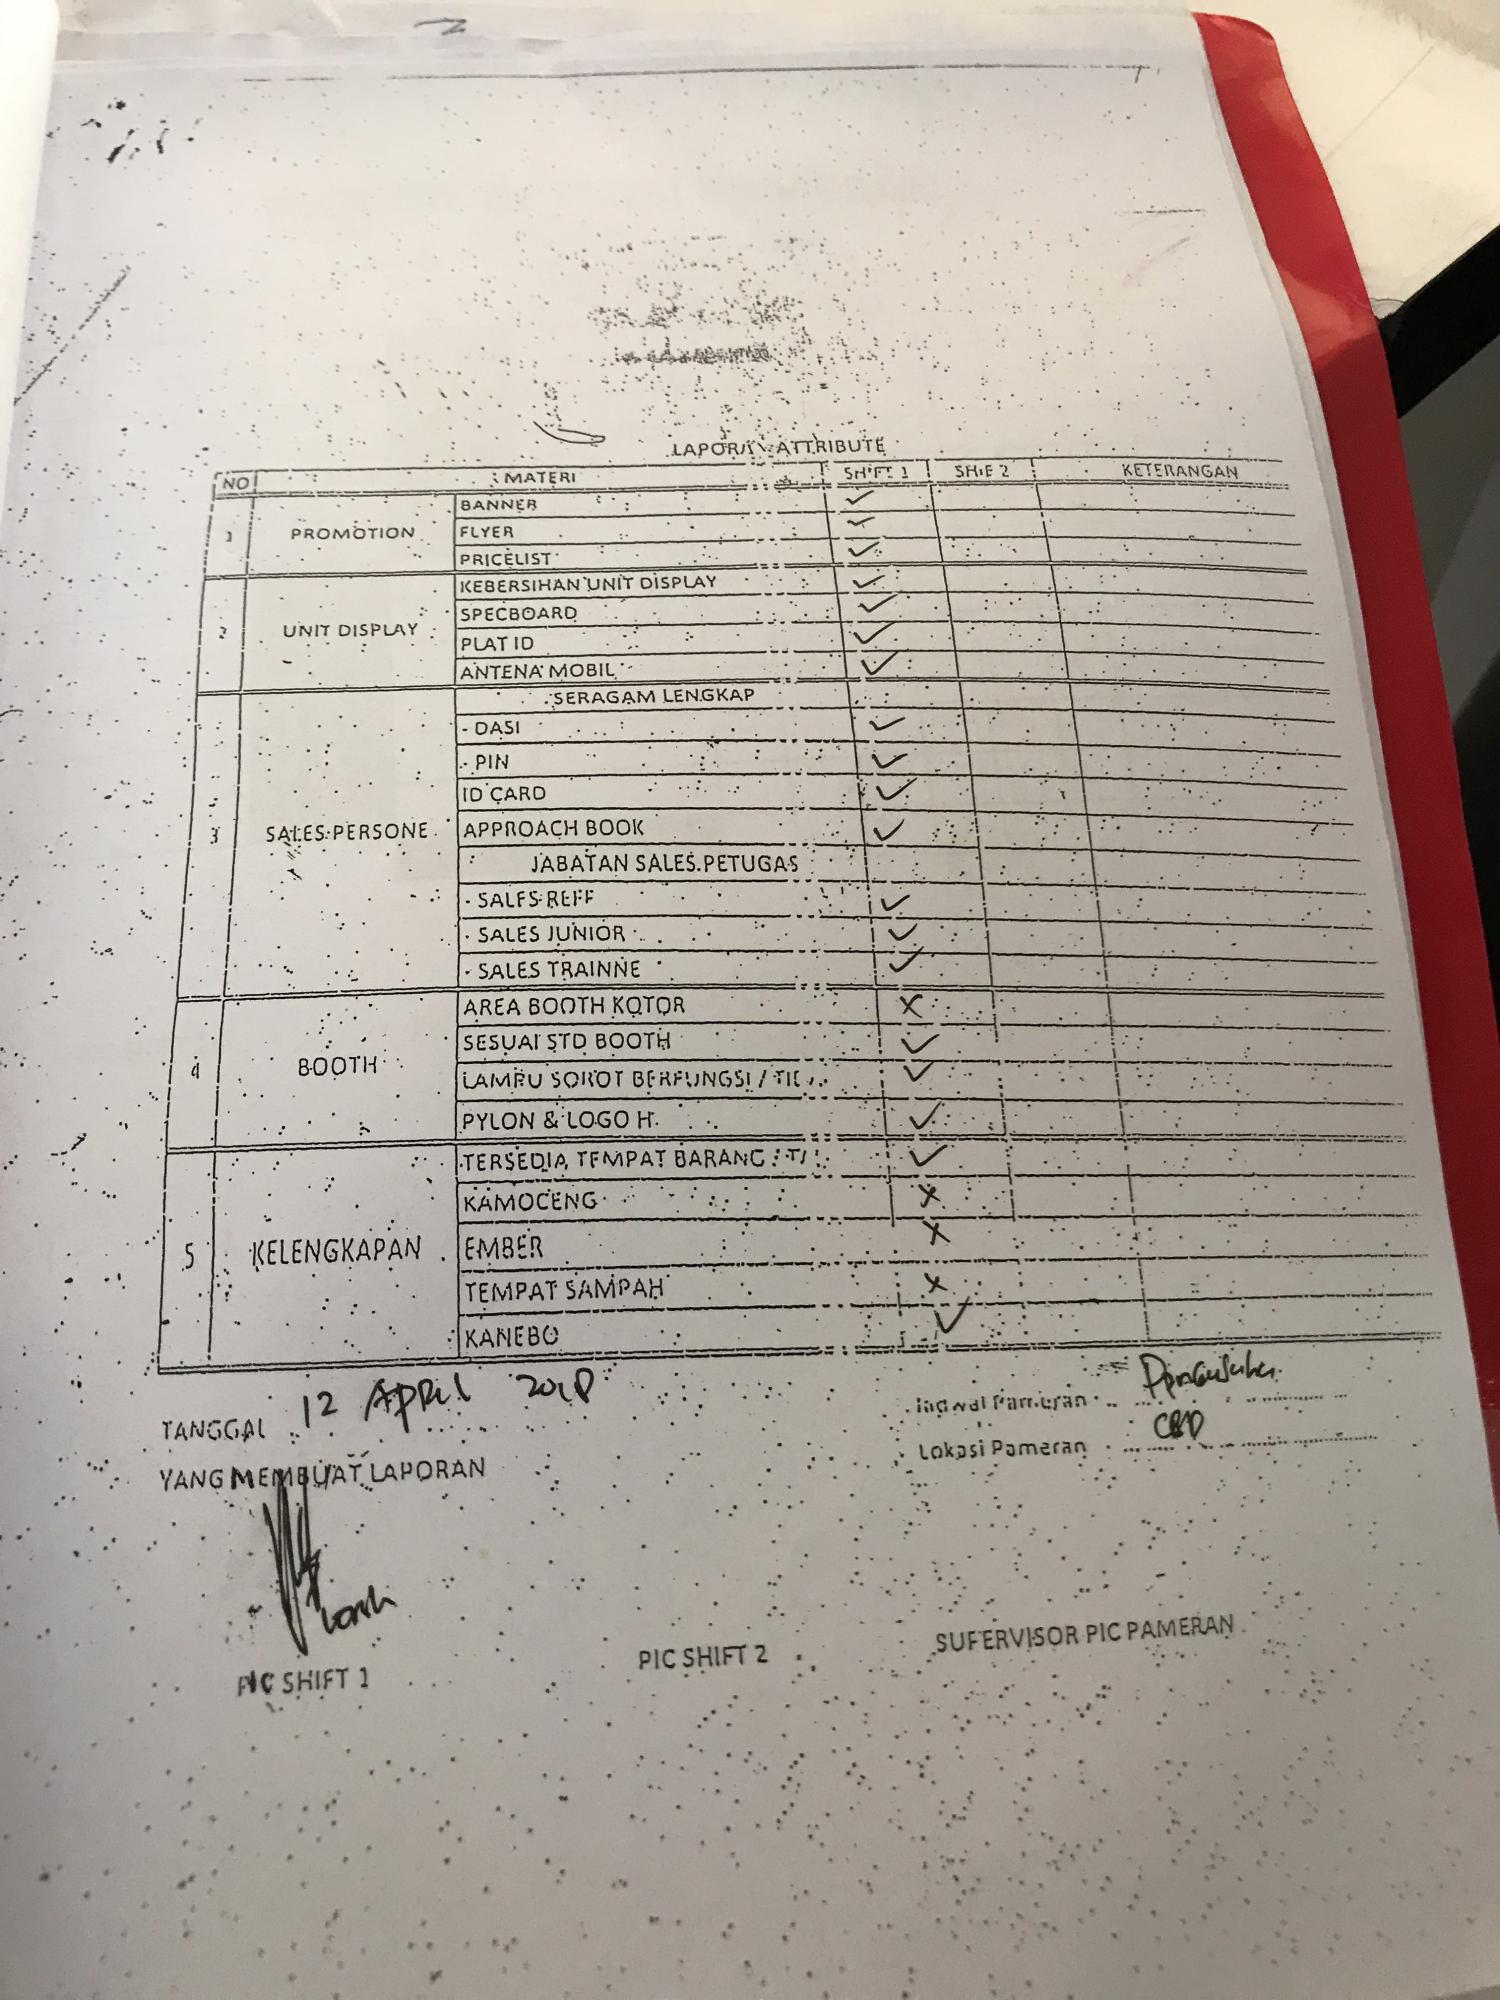 LAPORAN ATTRIBUTE
NO MATERI SHIFT 1 SHIF 2 KETERANGAN
1 PROMOTION BANNER ✓
FLYER ✓
PRICELIST ✓
2 UNIT DISPLAY KEBERSIHAN UNIT DISPLAY ✓
SPECBOARD ✓
PLAT ID ✓
ANTENA MOBIL ✓
3 SALES PERSONE SERAGAM LENGKAP
- DASI ✓
- PIN ✓
ID CARD ✓
APPROACH BOOK ✓
JABATAN SALES PETUGAS
- SALES REFF ✓
- SALES JUNIOR ✓
- SALES TRAINNE ✓
4 BOOTH AREA BOOTH KOTOR X
SESUAI STD BOOTH ✓
LAMPU SOROT BERFUNGSI / ✓
PYLON & LOGO H ✓
5 KELENGKAPAN TERSEDIA TEMPAT BARANG / ✓
KAMOCENG X
EMBER X
TEMPAT SAMPAH X
KANEBO ✓
TANGGAL 12 APRIL 2018
Jadwal Pameran
Lokasi Pameran CBD
YANG MEMBUAT LAPORAN
PIC SHIFT 1 PIC SHIFT 2 SUPERVISOR PIC PAMERAN